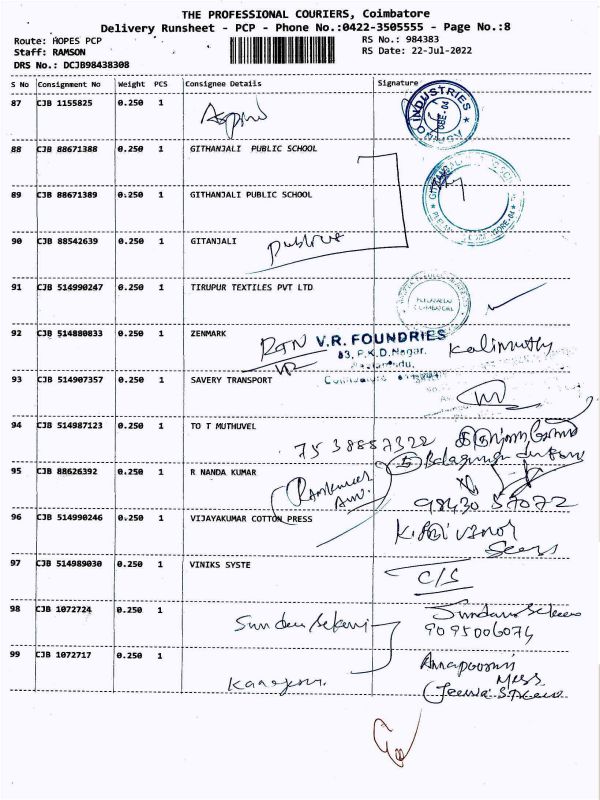 THE PROFESSIONAL COURIERS, Coimbatore
Delivery Runsheet - PCP - Phone No.:0422-3505555 - Page No.:8
Route: HOPES PCP
RS No.: 984383
Staff: RAMSON
RS Date: 22-Jul-2022
DRS No.: DCJB98438308
S No Consignment No Weight PCS Consignee Details Signature
87 CJB 1155825 0.250 1
INDUSTRIES
88 CJB 88671388 0.250 1 GITHANJALI PUBLIC SCHOOL
89 CJB 88671389 0.250 1 GITHANJALI PUBLIC SCHOOL
90 CJB 88542639 0.250 1 GITANJALI
91 CJB 514990247 0.250 1 TIRUPUR TEXTILES PVT LTD
92 CJB 514880833 0.250 1 ZENMARK
RTN V.R. FOUNDRIES Kalimuthu
83, P.K.D.Nagar,
93 CJB 514907357 0.250 1 SAVERY TRANSPORT
94 CJB 514987123 0.250 1 TO T MUTHUVEL
7538857322
95 CJB 88626392 0.250 1 R NANDA KUMAR
Ramkumar
98430 57072
96 CJB 514990246 0.250 1 VIJAYAKUMAR COTTON PRESS
97 CJB 514989030 0.250 1 VINIKS SYSTE
C/S
98 CJB 1072724 0.250 1
9095006074
99 CJB 1072717 0.250 1